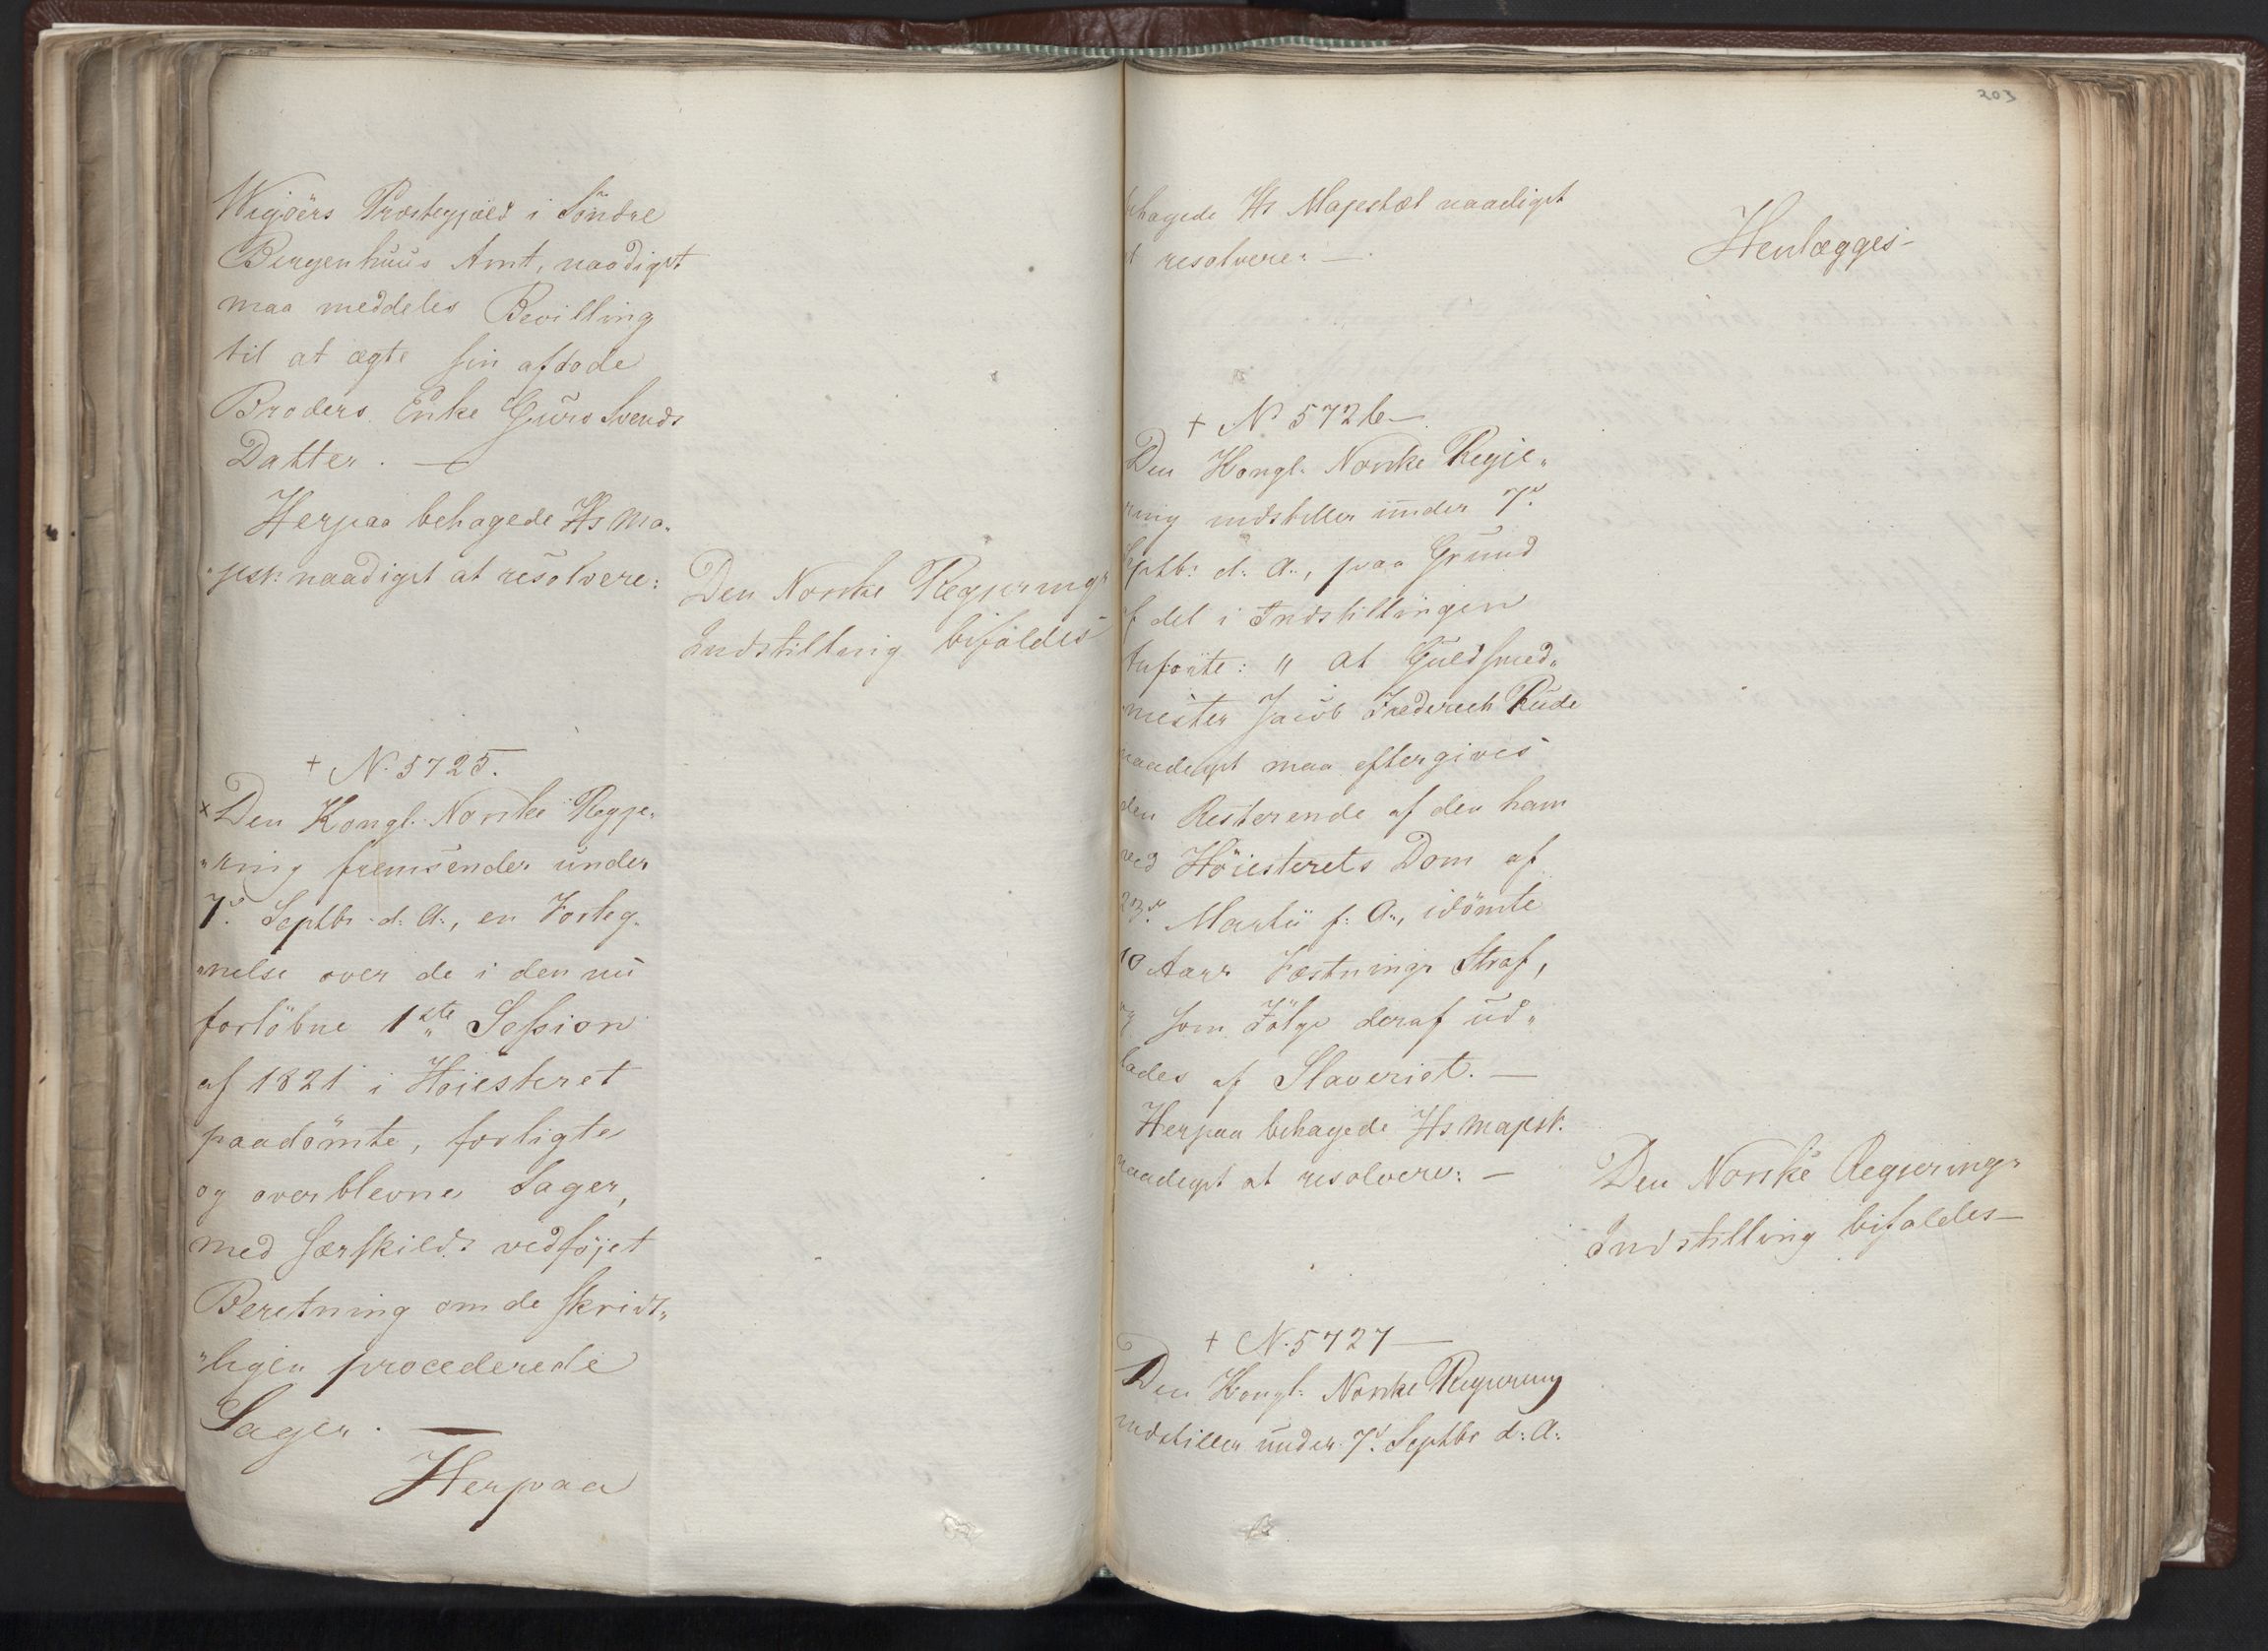 Wigöers Præstegjæld i Söndre
Bergenhuus Amt, naadigst
maa meddeles Bevilling
til at ægte sin afdøde
Broders Enke Guro Svends
Datter. —
Herpaa behagede Hs Ma„
„jest: naadigst at resolvere:
Den Norske Regjerings
Indstilling bifaldes
+ N. 5725.
× Den Kongl. Norske Regje„
„ring fremsender under
7d. Septbr d: A:, en Forteg„
„nelse over de i den nu
forløbne 1ste Session
af 1821 i Høiesteret
paadömte, forligte
og overblevne Sager,
med særskildt vedföjet
Beretning om de skrivt„
„ligen procederede
Sager. —
Herpaa
203
behagede Hs Majestæt naadigst
at resolvere: —
Henlægges —
+ No 5726 —
Den Kongl. Norske Regje„
ring indstiller under 7d.
Septb: d: A:, paa Grund
af det i Indstillingen
Anförte: „ at Guldsmed„
mester Jacob Frederich Rude
naadigst maa eftergives
den Resterende af den ham
ved Höiesterets Dom af
23d. Martii f: A:, idömte
10 Aars Fæstnings Straf,
og som Fölge deraf ud„
lades af Slaveriet. —
Herpaa behagede Hs Majest.
naadigst at resolvere: —
Den Norske Regjerings
Indstilling bifaldes —
+ N. 5727 —
Den Kongl: Norske Regjering
indstiller under 7d. Septbr d: A: